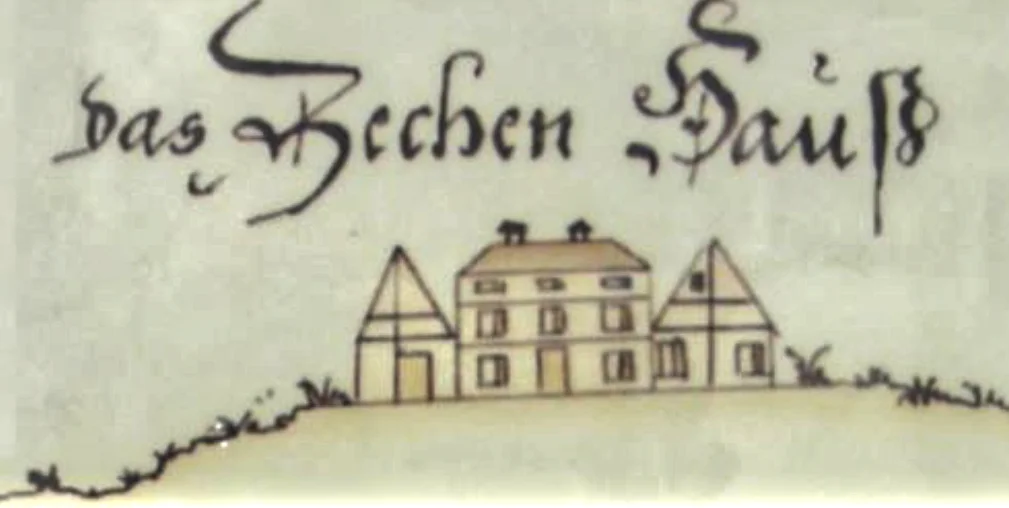 das Zechen Hauß